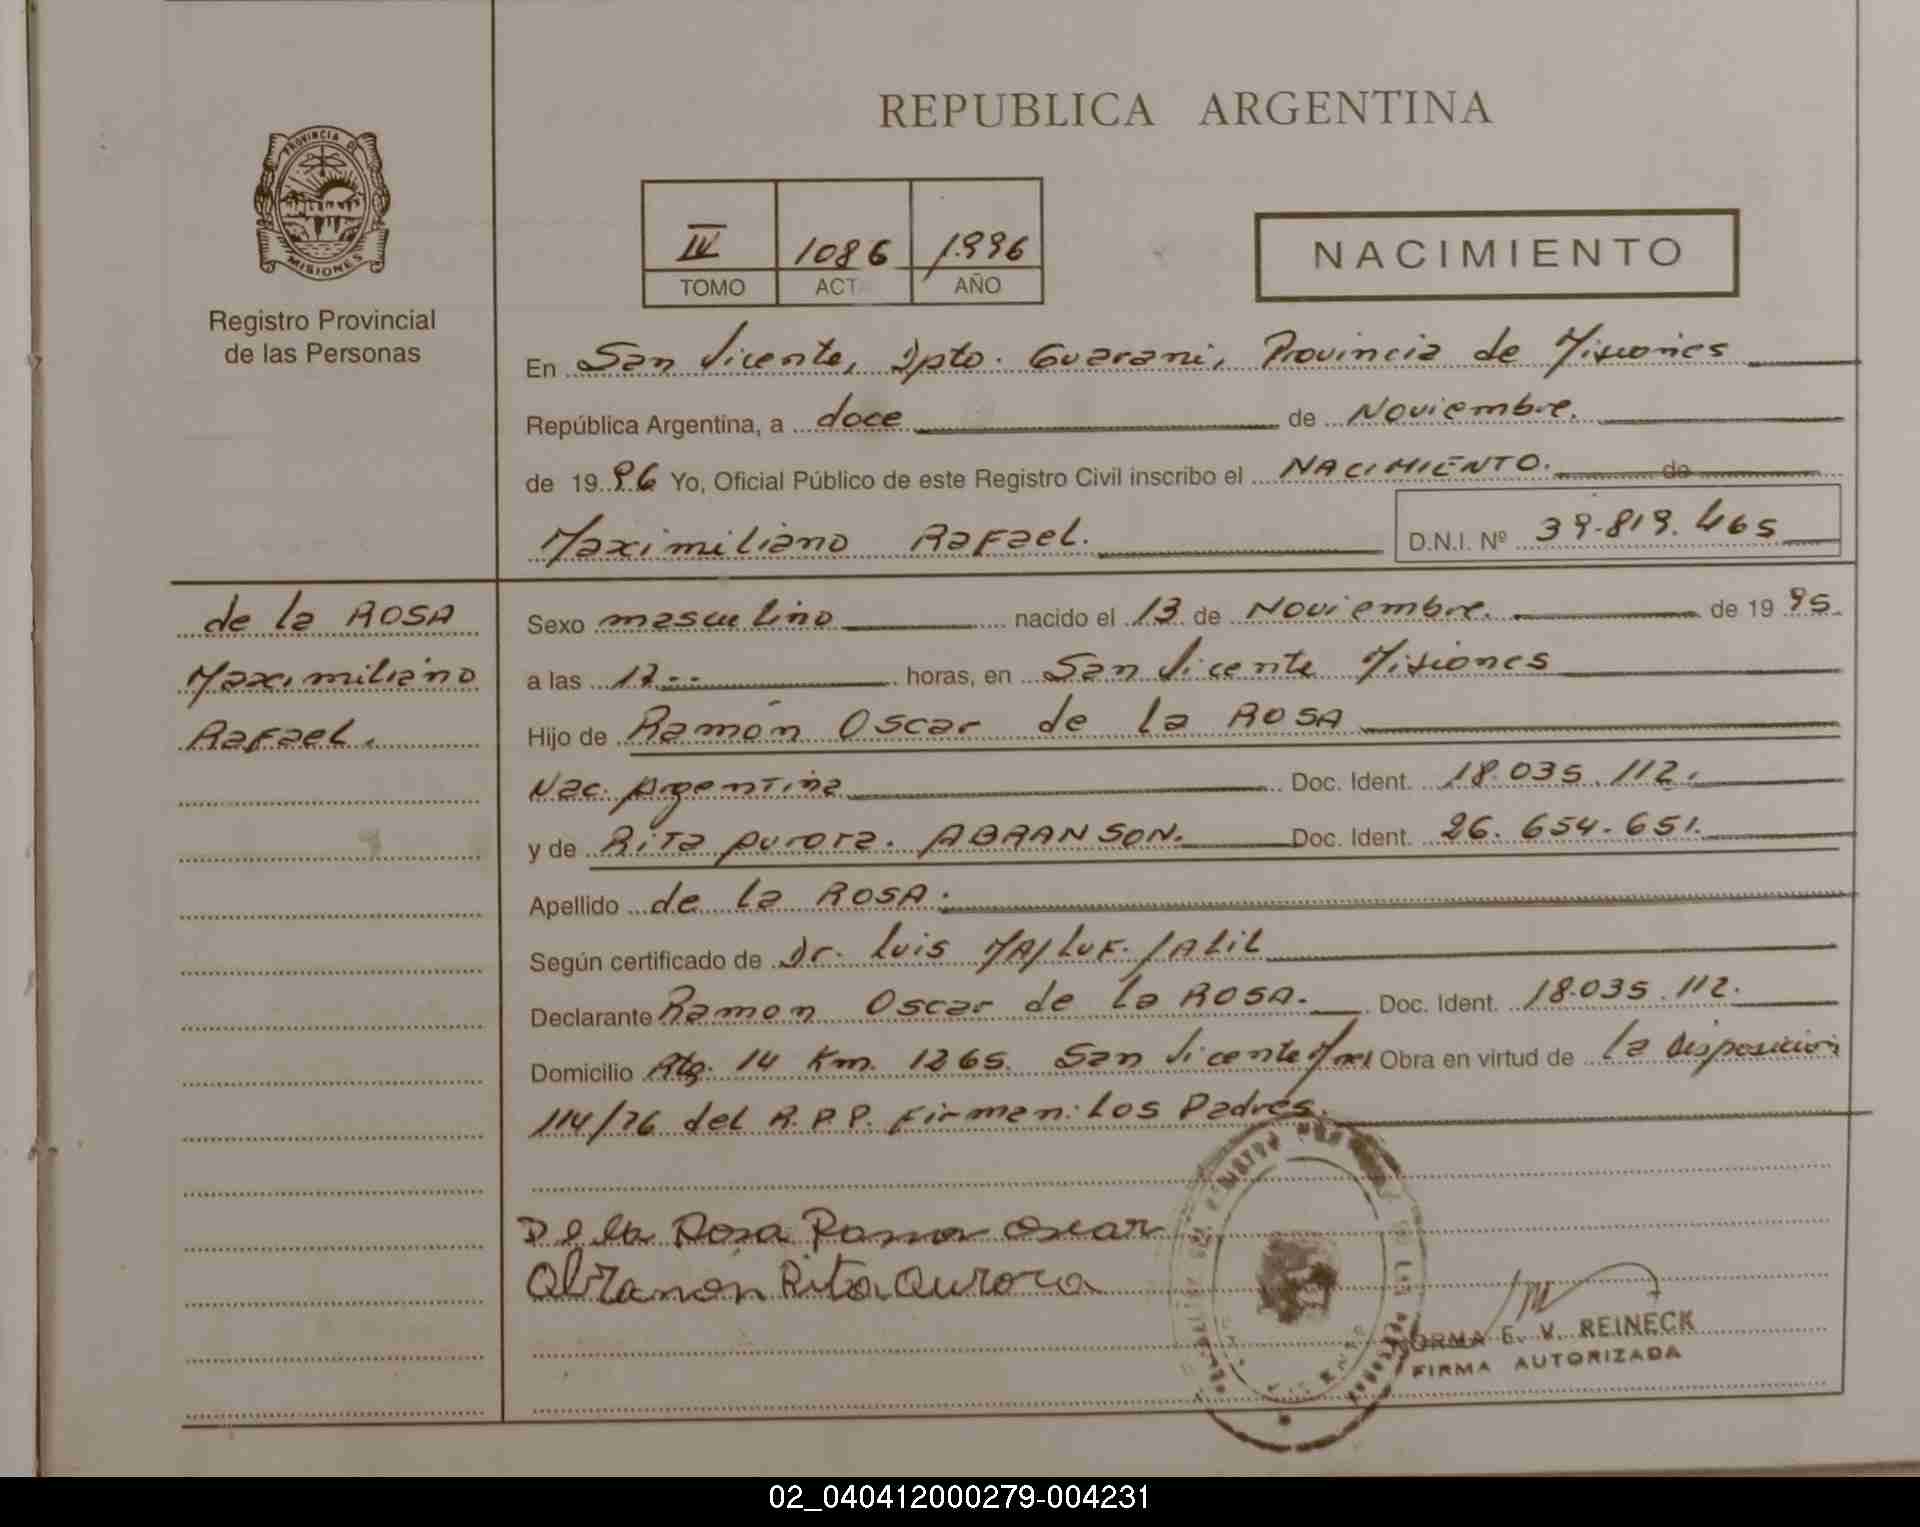 REPUBLICA ARGENTINA
PROVINCIA DE
MISIONES
Registro Provincial
de las Personas
IV 1086 1.996
TOMO ACTA AÑO
NACIMIENTO
En San Vicente, Dpto. Guarani, Provincia de Misiones
República Argentina, a doce de Noviembre.
de 19 96 Yo, Oficial Público de este Registro Civil inscribo el NACIMIENTO. de
Maximiliano Rafael. D.N.I. Nº 39.819.465
de la ROSA
Maximiliano
Rafael.
Sexo masculino nacido el 13 de Noviembre. de 19 95
a las 17.-- horas, en San Vicente Misiones
Hijo de Ramón Oscar de la ROSA
Nac. Argentina Doc. Ident. 18.035.112.
y de Rita Aurora. ABRANSON. Doc. Ident. 26.654.651.
Apellido de la ROSA.
Según certificado de Dr. Luis MAJLUF. JALIL
Declarante Ramon Oscar de la ROSA. Doc. Ident. 18.035.112.
Domicilio Rta. 14 Km. 1265. San Vicente Mnes Obra en virtud de la disposición
114/76 del R.P.P. Firman: Los Padres.
De la Rosa Ramon Oscar
Abranson Rita Aurora
NORMA E. V. REINECK
FIRMA AUTORIZADA
02_040412000279-004231